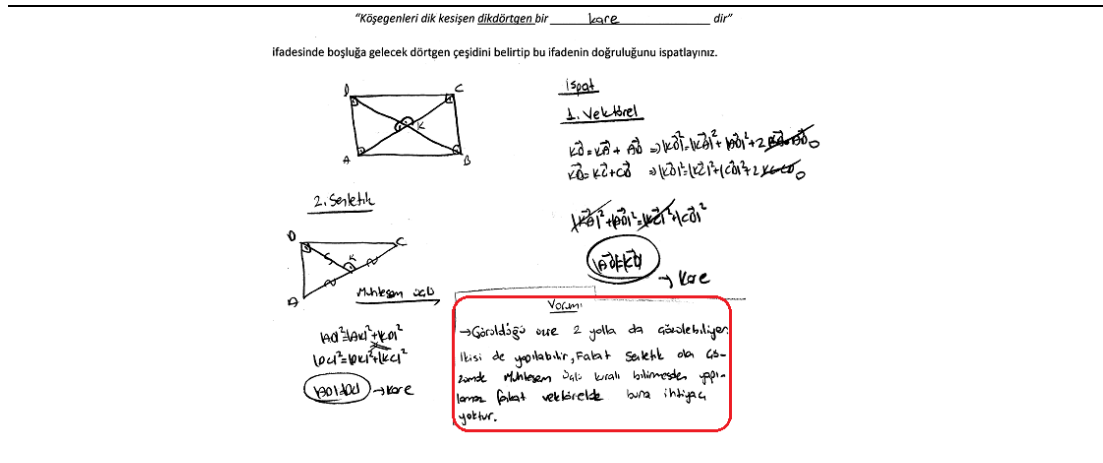 "Köşegenleri dik kesişen dikdörtgen bir kare dir"
ifadesinde boşluğa gelecek dörtgen çeşidini belirtip bu ifadenin doğruluğunu ispatlayınız.
D C
K
A B
İspat
1. Vektörel
K⃗D=K⃗A+A⃗D ⇒|K⃗D|²=|K⃗A|²+|A⃗D|²+2 0
K⃗D=K⃗C+C⃗D ⇒|K⃗D|²=|K⃗C|²+|C⃗D|²+2 K⃗C·C⃗D 0
|K⃗A|²+|A⃗D|²=|K⃗C|²+|C⃗D|²
|A⃗D|=|C⃗D|
→ Kare
2. Sentetik
D C
K
A
Muhteşem üçlü
|AD|²=|AK|²+|KD|²
|DC|²=|DK|²+|KC|²
|AD|=|DC| → Kare
Yorum:
→Görüldüğü üzere 2 yolla da çözülebiliyor.
İkisi de yapılabilir, Fakat Sentetik olan çö-
zümde Muhteşem üçlü kuralı bilinmeden yapı-
lamaz fakat vektörelde buna ihtiyaç
yoktur.